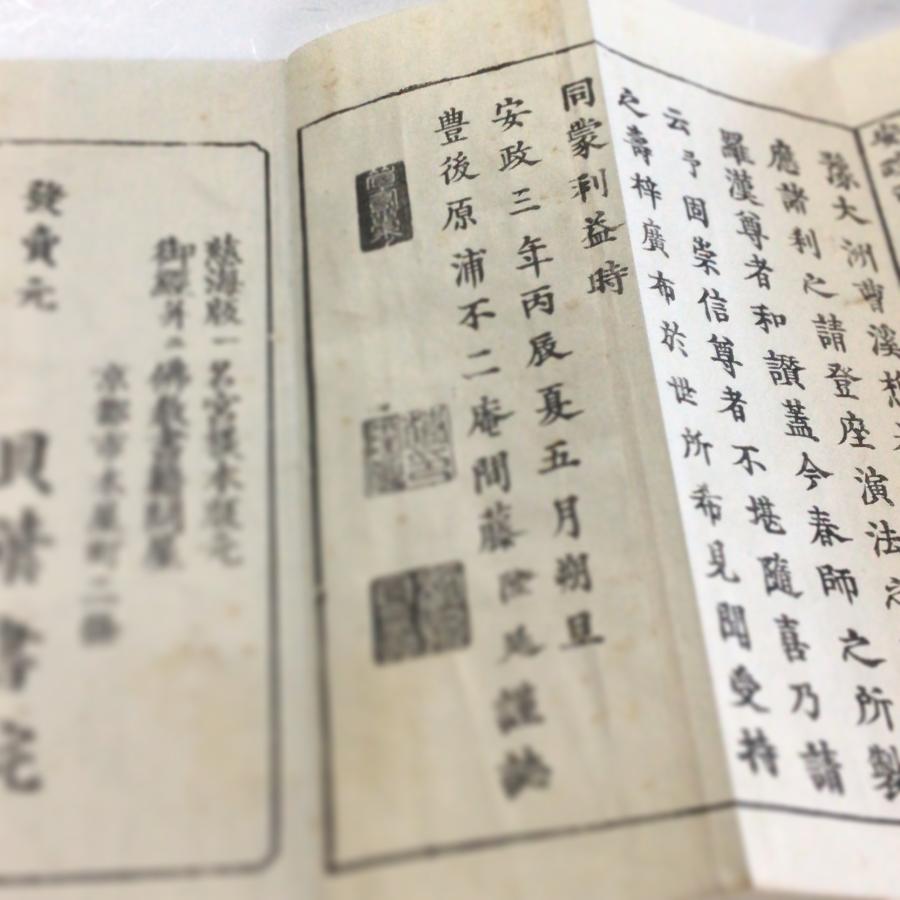 豫大洲曹溪
應諸利之請登座演法之
羅漢尊者和讃蓋今春師之所製
云予固崇信尊者不堪隨喜乃請
之壽梓廣布於世所希見聞受持
同蒙利益時
安政三年丙辰夏五月朔旦
豊後原浦不二庵間藤謹誌
慈海版一名宮版木版元
御經并ニ佛教書籍製本屋
京都市木屋町二條
發賣元
貝葉書院